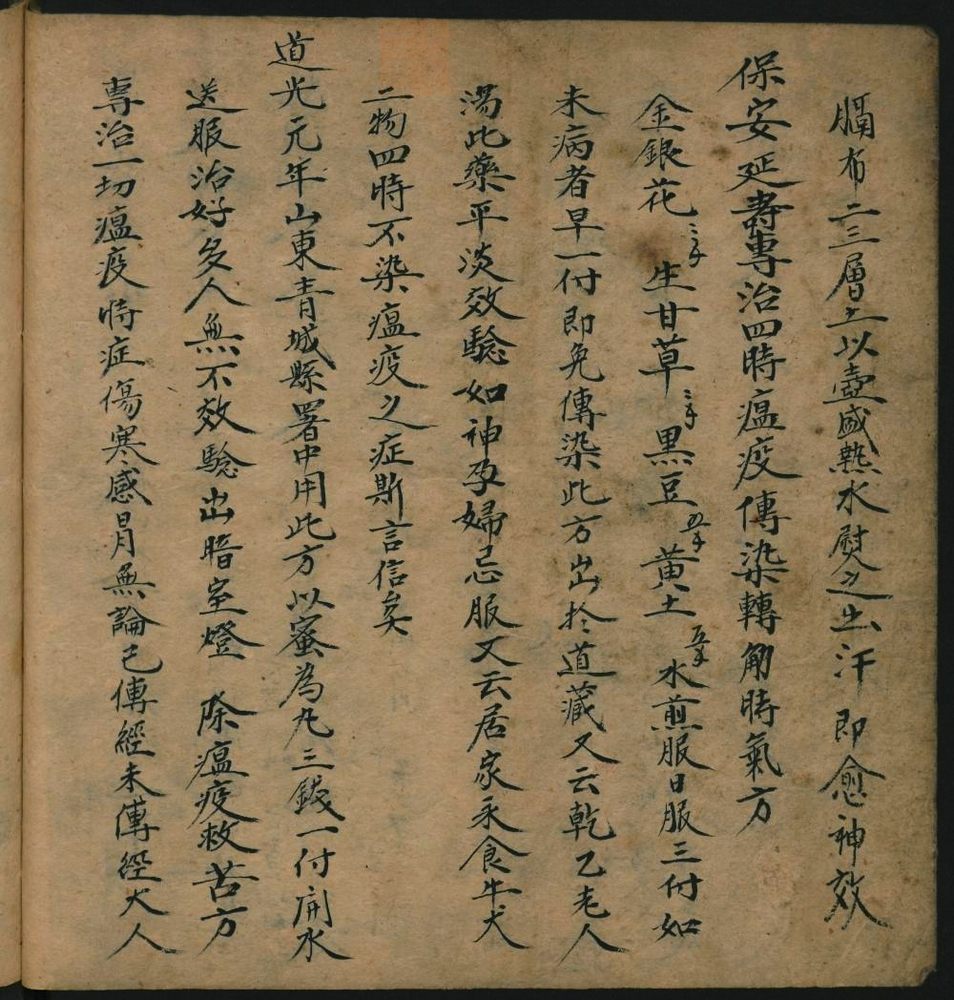 膈布二三層上以壺盛熱水熨之出汗即愈神效
保安延壽專治四時瘟疫傳染轉觔時氣方
金銀花 二 生甘草 二 黑豆 黃土 五 水煎服日服三付如
未病者早一付即免傳染此方出於道藏又云乾乙老人
湯此藥平淡效驗如神孕婦忌服又云居家永食牛犬
二物四時不染瘟疫之症斯言信矣
道光元年山東青城縣署中用此方以蜜為丸三錢一付開水
送服治好多人無不效驗出暗室燈 除瘟疫救苦方
專治一切瘟疫時症傷寒感冒無論已傳經未傳經大人